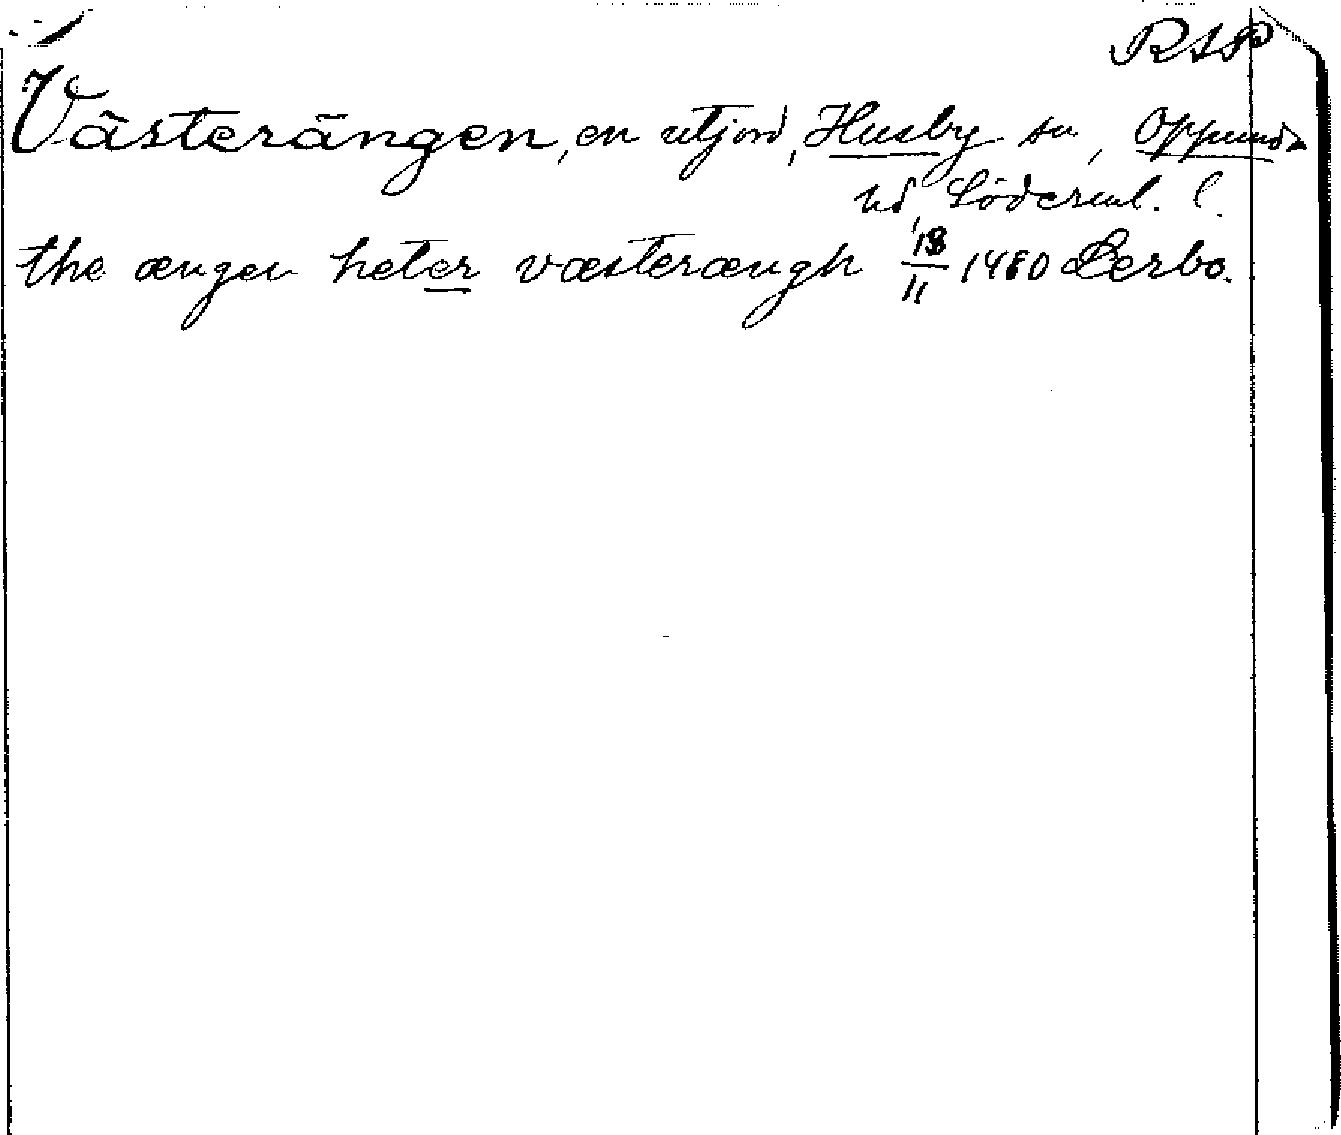 RAP
Västerängen, en utjord, Husby sn, Oppunda
hd, Söderml. l.
the ængen heter væsterængh 18/11 1480 Lerbo.